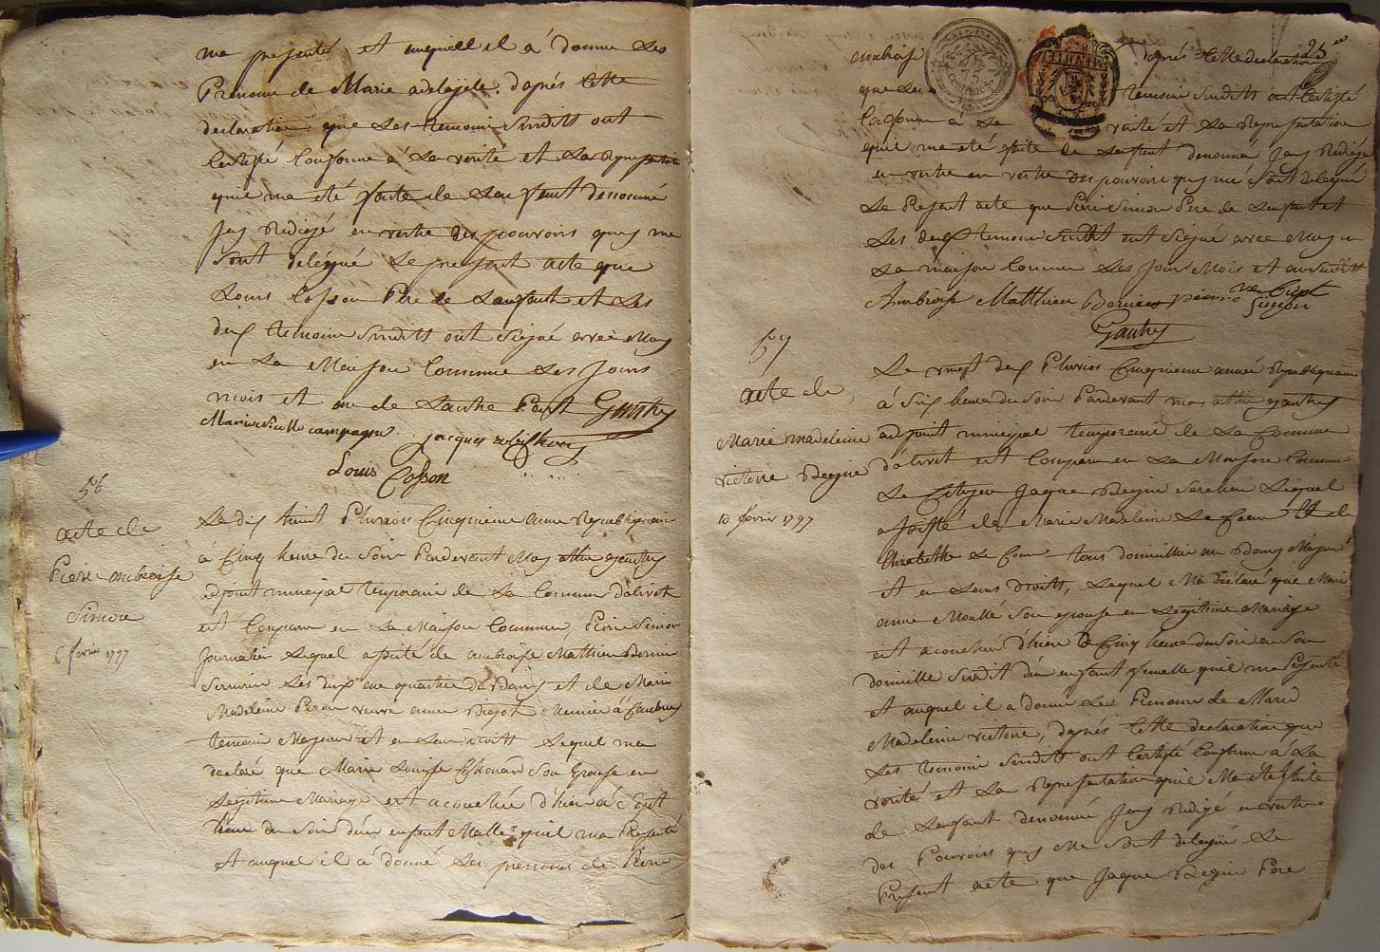 ma presenté et auquelle il a donne Les
Prenoms de Marie adelayde. d'après Cette
declaration que Les temoins Susdits ont
Certifié Conforme à La verité et La representation
qui m'a eté faite de L'enfant denommé
Jay Redigé en vertu des pouvoirs quy me
Sont delegué Le present acte que
Louis Cosson Pere de L'enfant et Les
deux temoins Susdits ont Signé avec Moy
en La Maison Commune Les Jours
mois et an de L'autre Part Gautry
Marie campagne jacques
Louis Cosson
56
acte de
Pierre ambroise
Simon
6 février 1797
Le dix huit Pluviose Cinquieme anne Republiquaine
a Cinq heure du Soir Pardevant Moy Gautry
adjoint municipal temporaire de La Commune d'olivet
est Comparu en La Maison Commune, Pierre Simon
Journalier Lequel assisté de ambroise Mathieu
Les deux et de Marie
Madeleine veuve
temoins Majeurs et en Leurs droits Lequel ma
declaré que Marie Louise Son Epouse en
Legitime Mariage est acouchée d'hier à
heure du Soir d'un enfant Malle qu'il ma Presenté
et auquel il à donné Les prenoms de Pierre
25
ambroise d'après Cette declaration
que Les temoins Susdits ont Certifié
Conforme à La verité et La Representation
qui m'a eté faite de L'enfant denommé Jay Redigé
en vertu des pouvoirs quy me Sont delegué
Le Present acte que Pierre Simon Pere de L'enfant et
Les deux temoins Susdits ont Signé avec Moy en
La maison Commune Les Jour Mois et an Susdits
Ambroise Matthieu pierre Simon
Gautry
57
acte de
Marie madeleine
victoire Begin
10 février 1797
Le vingt deux Pluviose Cinquieme année Republiquaine
à Six heure du Soir Pardevant moy Gautry
adjoint municipal temporaire de La Commune
d'olivet est Comparu en La Maison Commune
Le Citoyen Jaque Lequel
assisté de Marie Madeleine Le et de
Elizabeth Le tous domicilié Majeurs
et en Leurs droits, Lequel Ma declaré que Marie
anne Son epouse en Legitime Mariage
est acouchée d'hier à Cinq heure du Soir en Son
domicille Susdit d'un enfant femelle quil ma Presenté
et auquel il a donné Les Prenoms de Marie
Madeleine victoire, d'après Cette declaration que
Les temoins Susdits ont Certifié Conforme à La
verité et La Representation qui Ma eté faite
de L'enfant denommé Jay Redigé en vertu
des Pouvoirs quy Me Sont delegué Le
Present acte que Jaque Begin Pere